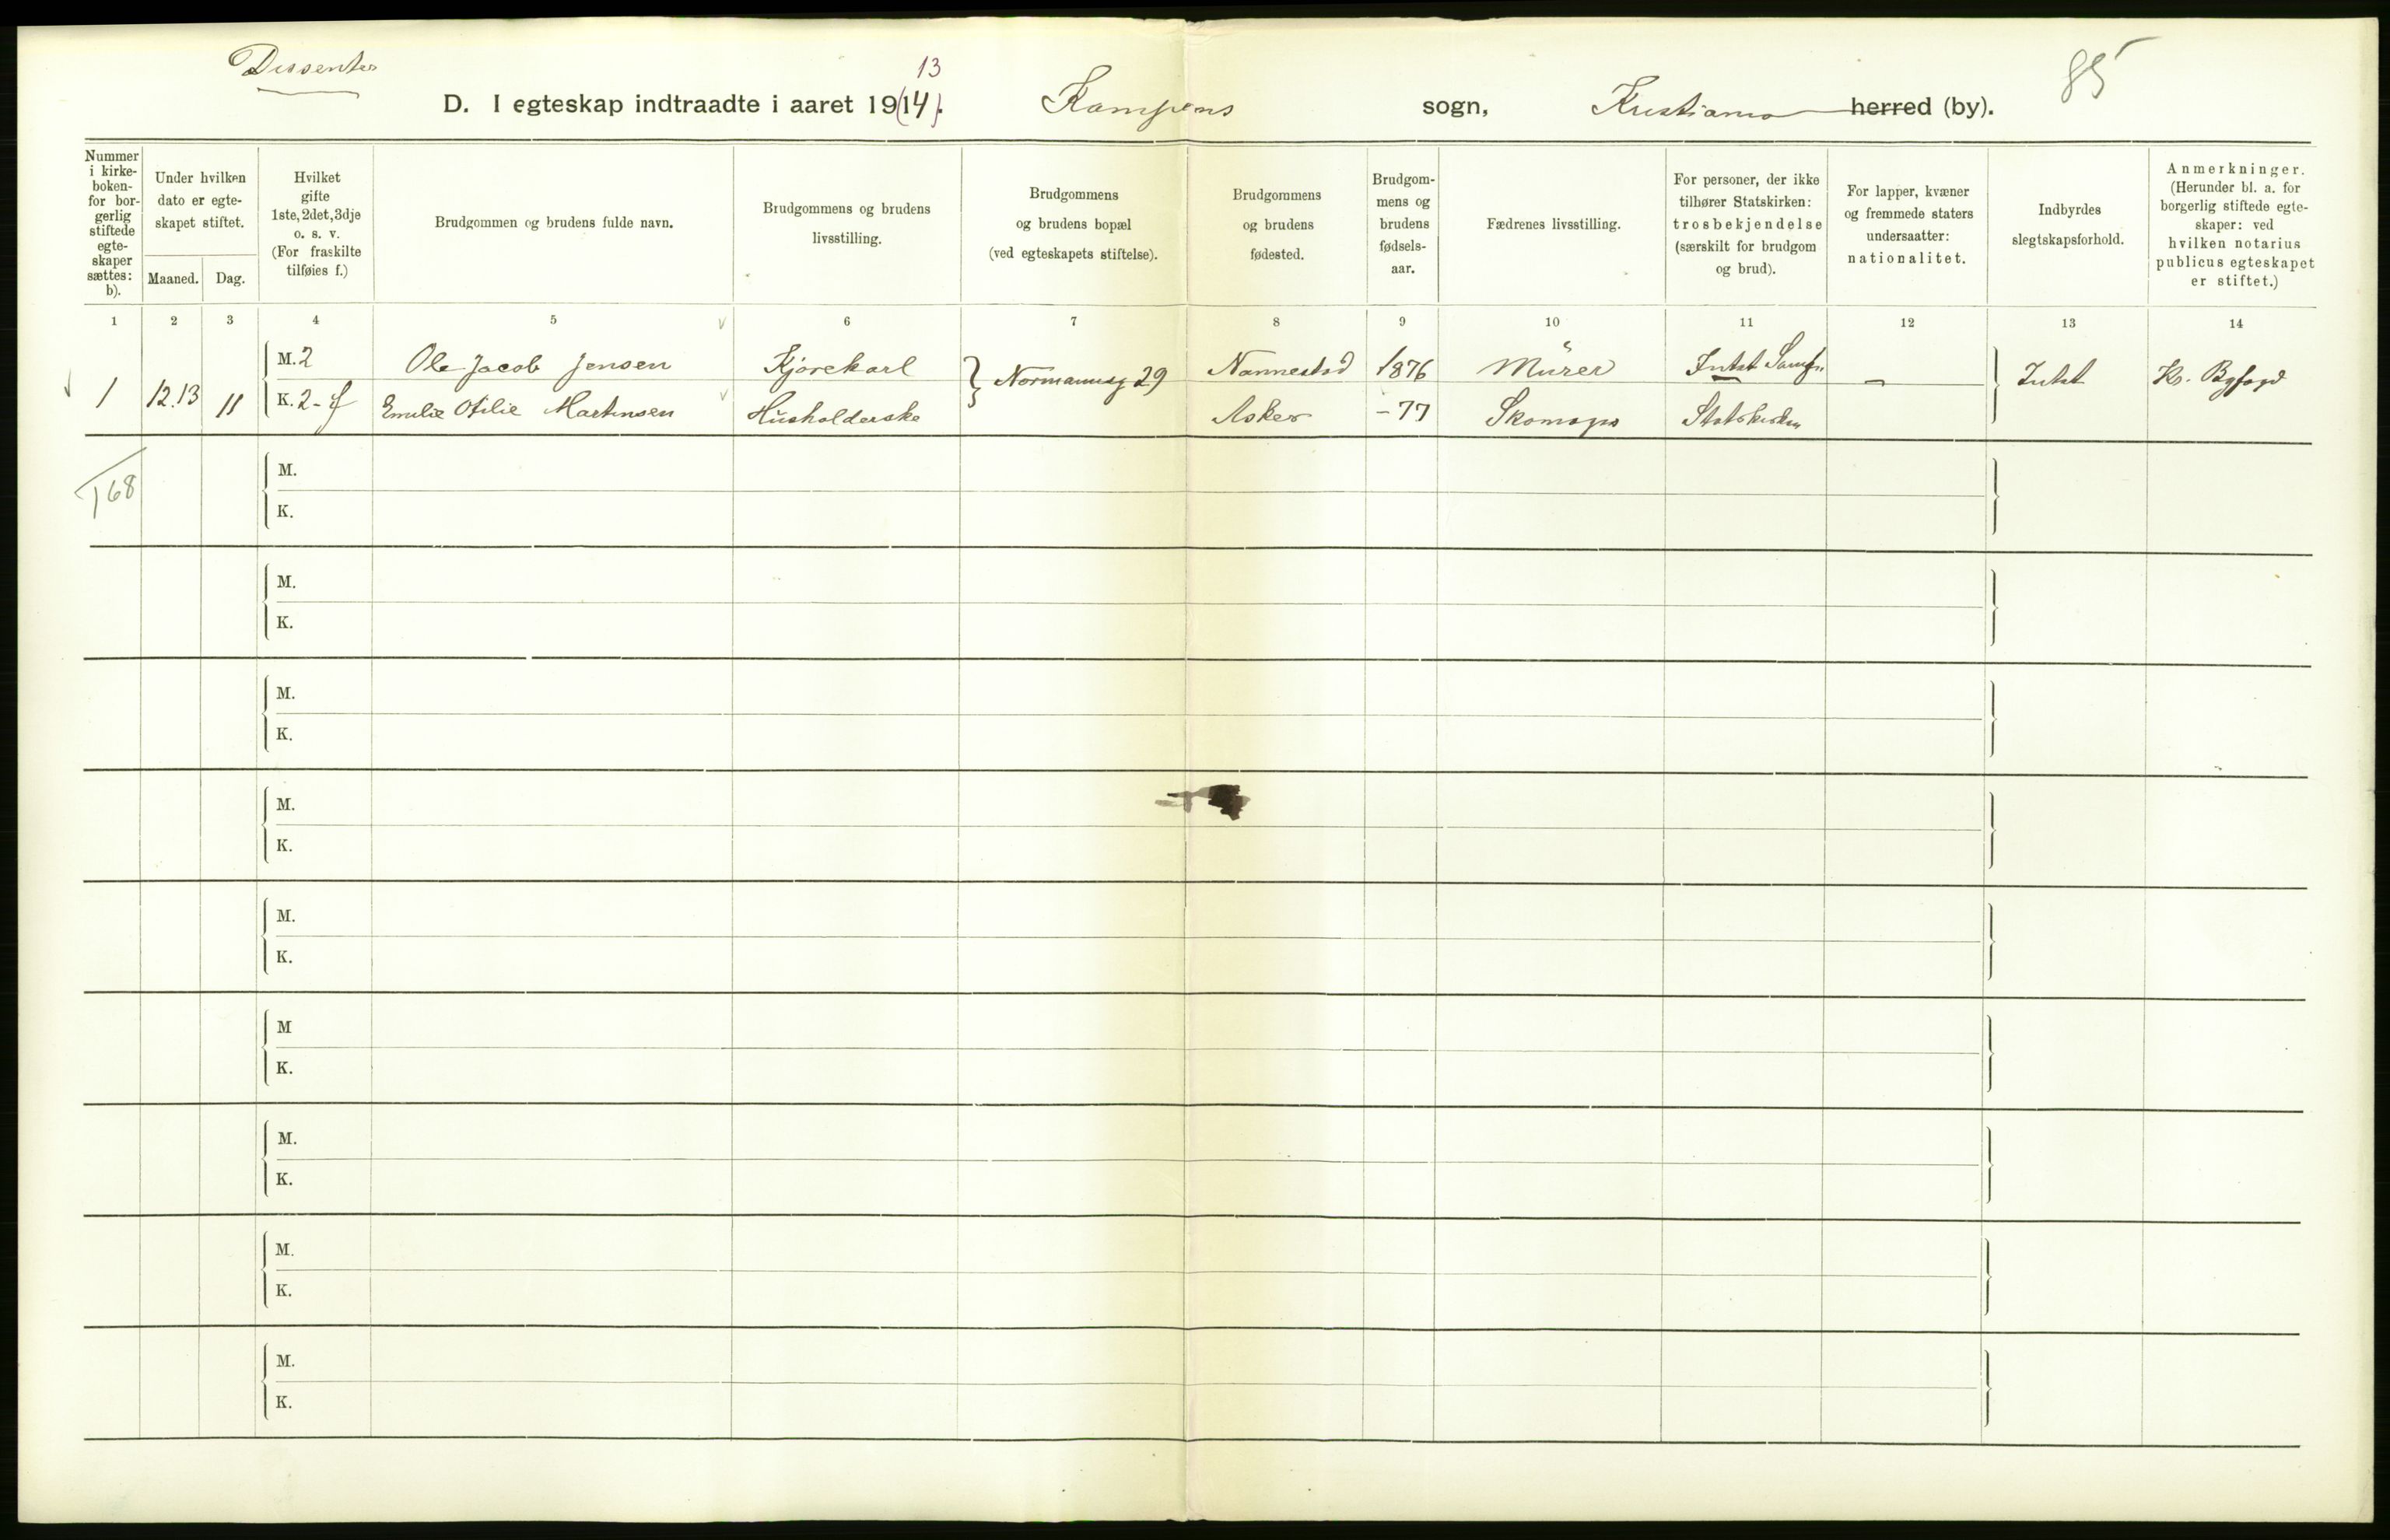 Dissenter
13
85
D. I egteskap indtraadte i aaret 19(14). Kampens sogn, Kristiania herred (by).
Nummer i kirke-boken- for bor-gerlig stiftede egte-skaper sættes: b).
Under hvilken dato er egte-skapet stiftet.
Maaned. Dag.
Hvilket gifte 1ste, 2det, 3dje o. s. v. (For fraskilte tilføies f.)
Brudgommen og brudens fulde navn.
Brudgommens og brudens livsstilling.
Brudgommens og brudens bopæl (ved egteskapets stiftelse).
Brudgommens og brudens fødested.
Brudgom-mens og brudens fødsels-aar.
Fædrenes livsstilling.
For personer, der ikke tilhører Statskirken: trosbekjendelse (særskilt for brudgom og brud).
For lapper, kvæner og fremmede staters undersaatter: nationalitet.
Indbyrdes slegtskapsforhold.
Anmerkninger. (Herunder bl. a. for borgerlig stiftede egte-skaper: ved hvilken notarius publicus egteskapet er stiftet.)
1 2 3 4 5 6 7 8 9 10 11 12 13 14
M. 2 Ole Jacob Jensen Kjørekarl Nannestad 1876 Murer Intet Samfn —
1 12.13 11 Normannsg 29 Intet Kr. Byfogd
K. 2 - f Emilie Otilie Martinsen Husholderske Asker - 77 Skomager Statskirken
168
M.
K.
M.
K.
M.
K.
M.
K.
M.
K.
M
K.
M.
K.
M.
K.
M.
K.